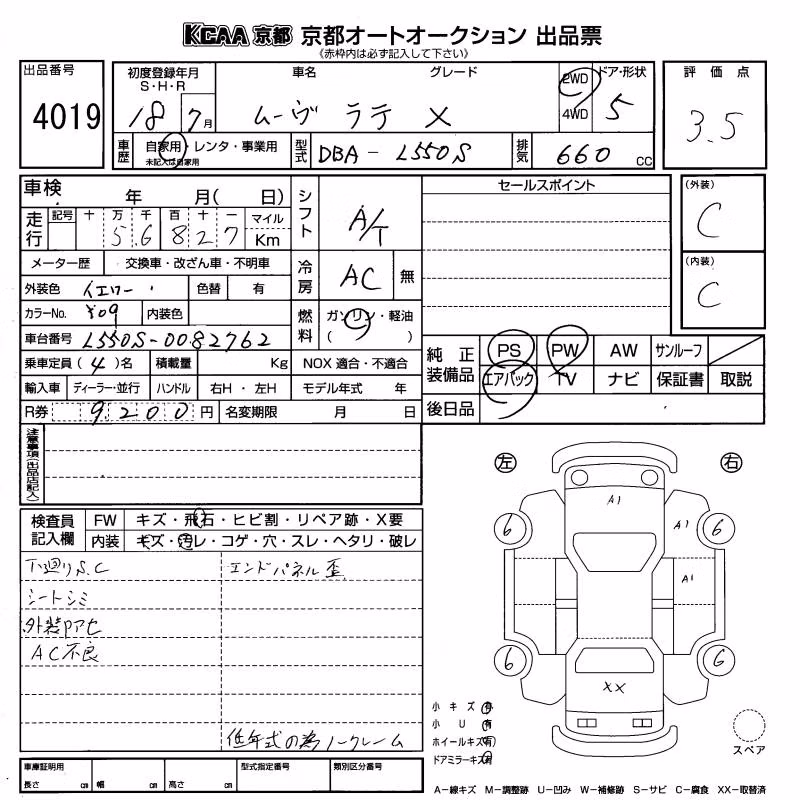 KCAA 京都 京都オートオークション 出品票
《赤枠内は必ず記入して下さい》
出品番号
4019
初度登録年月
S・H・R
18 7月
車名 グレード
ムーヴ ラテ X
2WD
4WD
ドア・形状
5
評価点
3.5
車歴
自家用・レンタ・事業用
未記入は自家用
型式
DBA-L550S
排気
660 CC
車検 年 月( 日)
走行
記号 十 万 千 百 十 一 マイル
5 6 8 2 7 Km
メーター歴 交換車・改ざん車・不明車
外装色 イエロー 色替 有
カラーNo. Y09 内装色
車台番号 L550S-0082762
乗車定員 (4)名 積載量 Kg
輸入車 ディーラー・並行 ハンドル 右H・左H
R券 9200円 名変期限 月 日
シフト A/T
冷房 AC 無
燃料 ガソリン・軽油
( )
NOX 適合・不適合
モデル年式 年
セールスポイント
(外装)
C
(内装)
C
純正装備品
PS PW AW サンルーフ
エアバック TV ナビ 保証書 取説
後日品
注意事項(出品店記入)
検査員記入欄
FW キズ・飛石・ヒビ割・リペア跡・X要
内装 キズ・汚レ・コゲ・穴・スレ・ヘタリ・破レ
下廻りS.C エンドパネル歪
シートシミ
外装Pアセ
AC不良
低年式の為ノークレーム
左 右
A1
6 A1 6
A1
6 6
XX
小キズ 有
小U 有
ホイールキズ 有
ドアミラーキズ 有
スペア
車庫証明用
長さ cm 幅 cm 高さ cm
型式指定番号 類別区分番号
A-線キズ M-調整跡 U-凹み W-補修跡 S-サビ C-腐食 XX-取替済